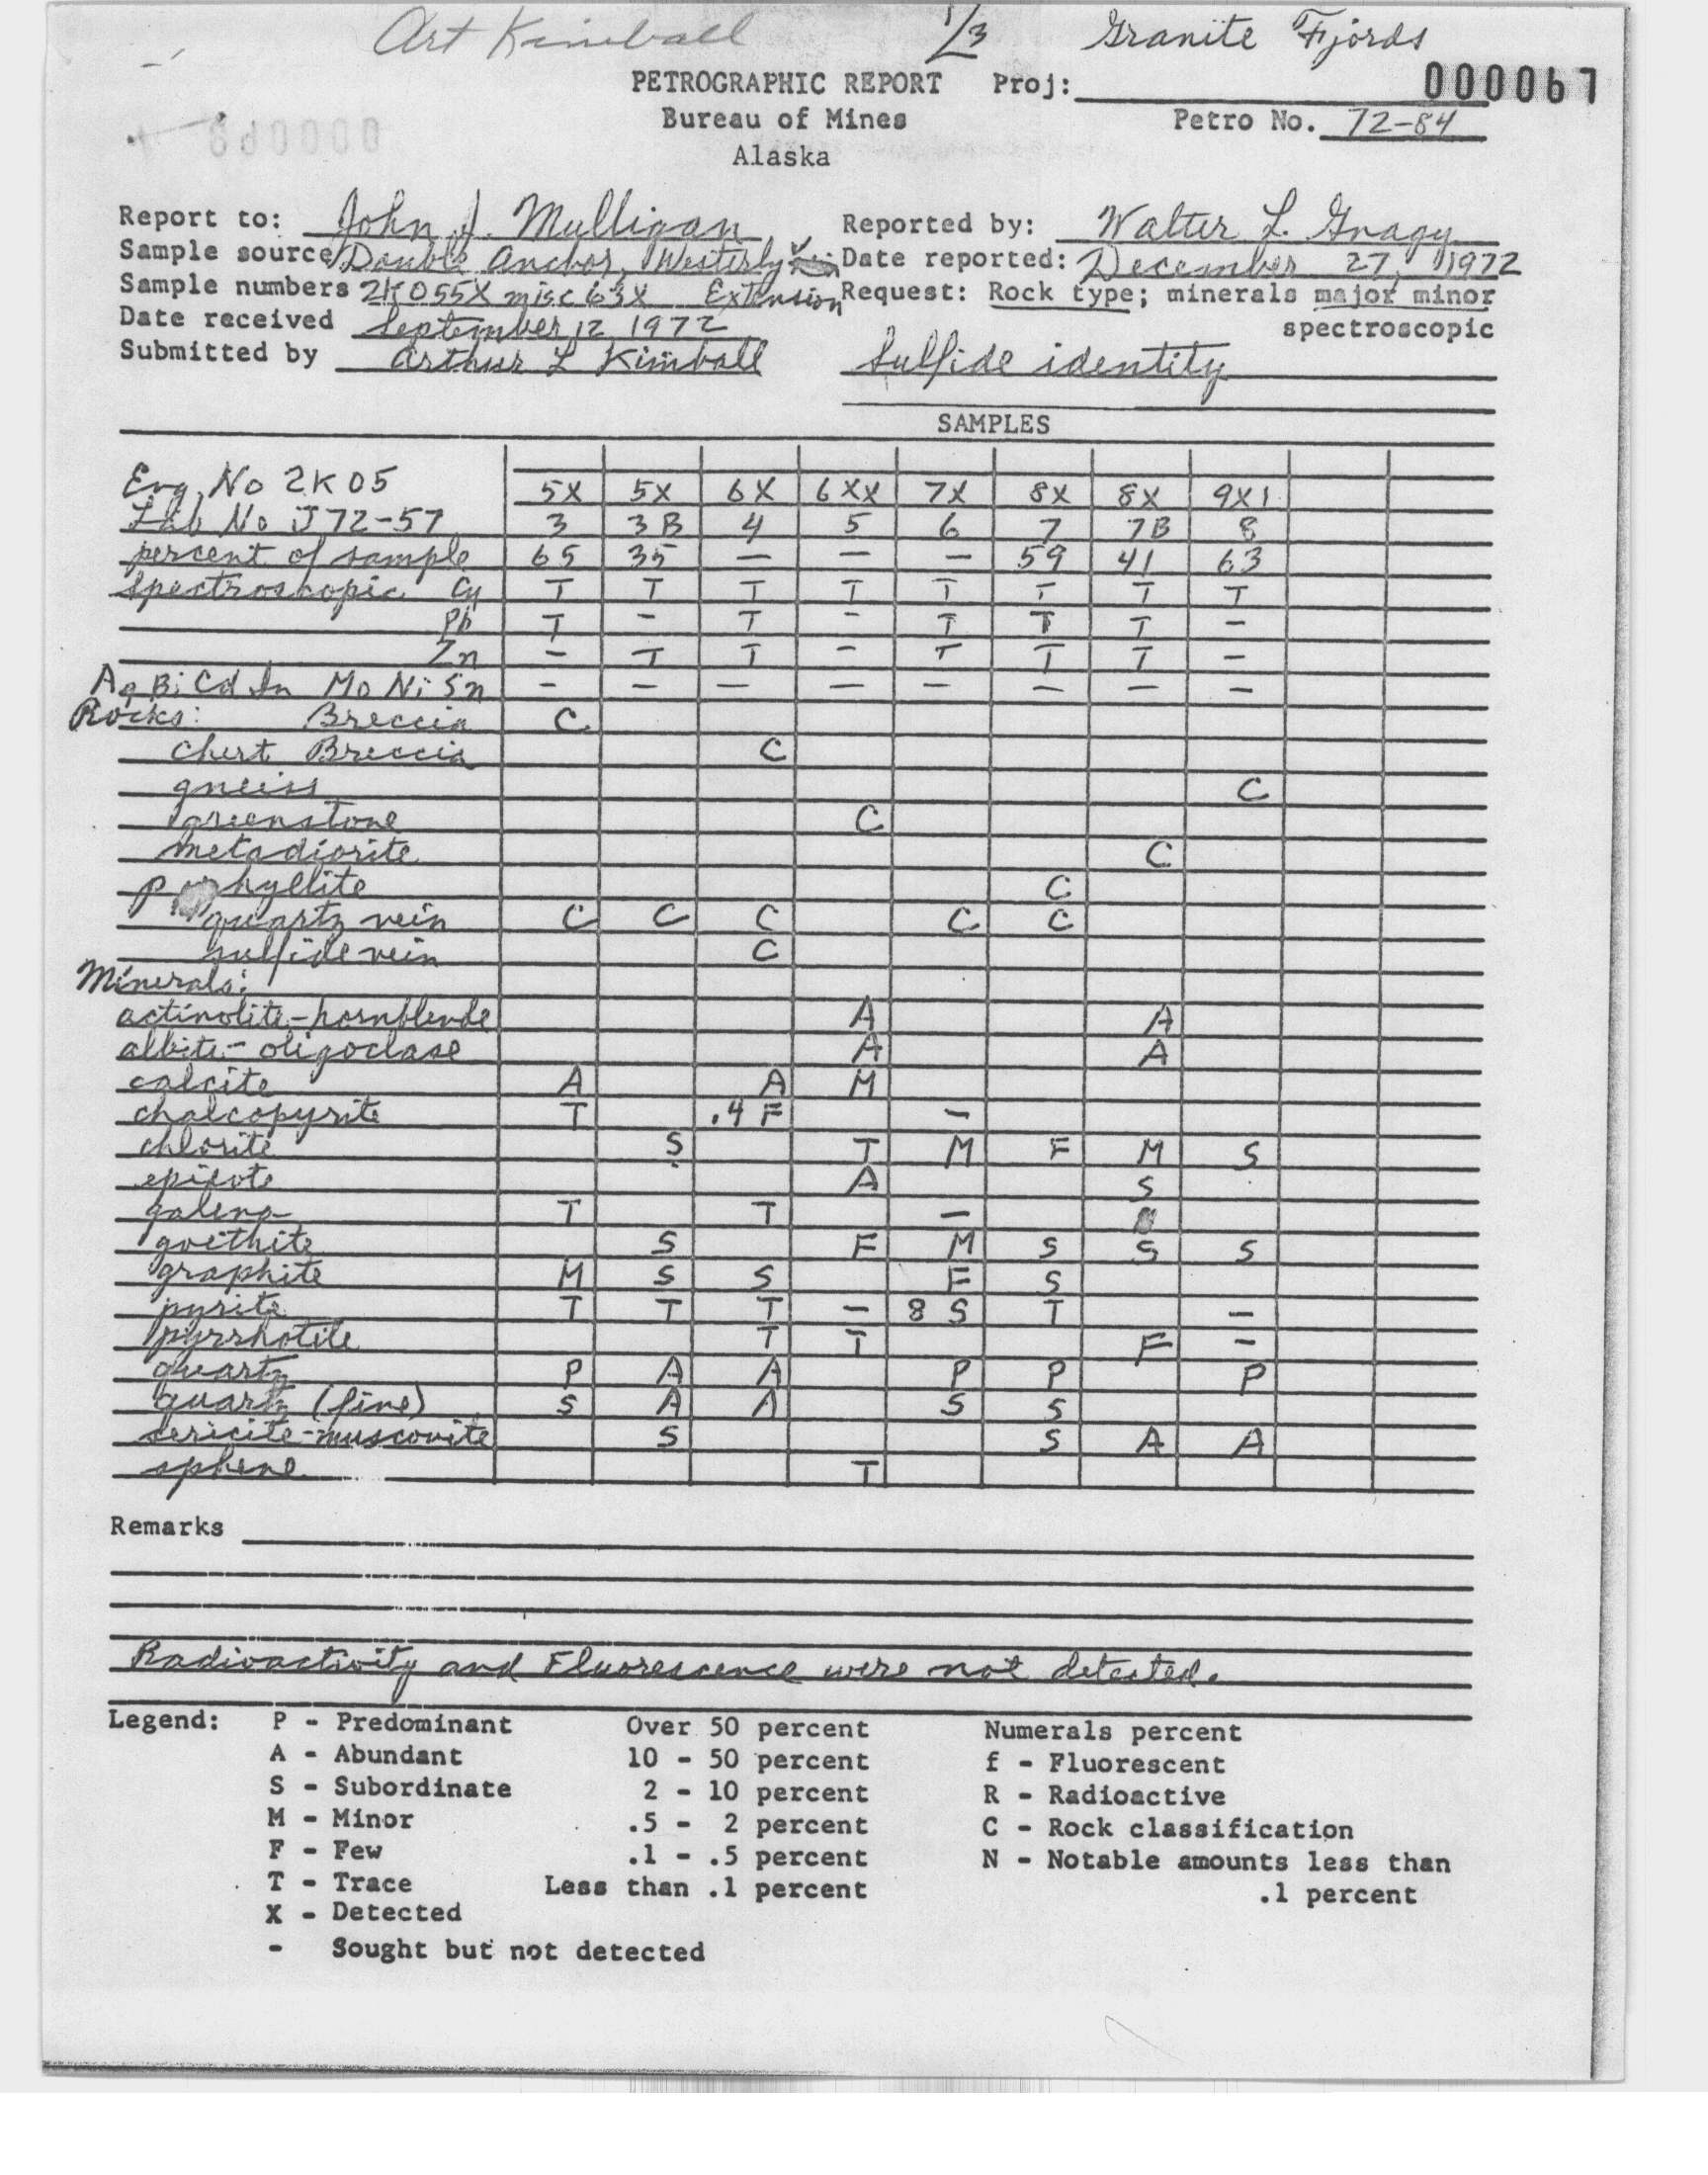 Art Kimball 1/3 Granite Fjords
PETROGRAPHIC REPORT Proj: 000067
Bureau of Mines Petro No. 72-84
Alaska
Report to: John J. Mulligan Reported by: Walter L. Gnagy
Sample source Double Anchor, Westerly Date reported: December 27, 1972
Sample numbers 2K055X misc 63X Extension Request: Rock type; minerals major minor
Date received September 12 1972 spectroscopic
Submitted by Arthur L Kimball Sulfide identity
SAMPLES
Eng. No 2K05 5X 5X 6X 6XX 7X 8X 8X 9X1
Lab No J72-57 3 3B 4 5 6 7 7B 8
percent of sample 65 35 — — — 59 41 63
Spectroscopic Cu T T T T T T T T
Pb T - T - T T T -
Zn - T T - T T T -
Ag Bi Cd In Mo Ni Sn - - - - - - - -
Rocks: Breccia C
Chert Breccia C
gneiss C
greenstone C
metadiorite C
phyllite C
quartz vein C C C C C
sulfide vein C
Minerals:
actinolite-hornblende A A
albite-oligoclase A A
calcite A A M
chalcopyrite T .4 F -
chlorite S T M F M S
epidote A S
galena T T -
goethite S F M S S S
graphite M S S F S
pyrite T T T - 8 S T -
pyrrhotite T T F -
quartz P A A P P P
quartz (fine) S A A S S
sericite-muscovite S S A A
sphene T
Remarks
Radioactivity and Fluorescence were not detected.
Legend: P - Predominant Over 50 percent Numerals percent
A - Abundant 10 - 50 percent f - Fluorescent
S - Subordinate 2 - 10 percent R - Radioactive
M - Minor .5 - 2 percent C - Rock classification
F - Few .1 - .5 percent N - Notable amounts less than
T - Trace Less than .1 percent .1 percent
X - Detected
- Sought but not detected